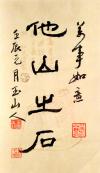 萬事如意
他山之石
壬辰元月玉山人